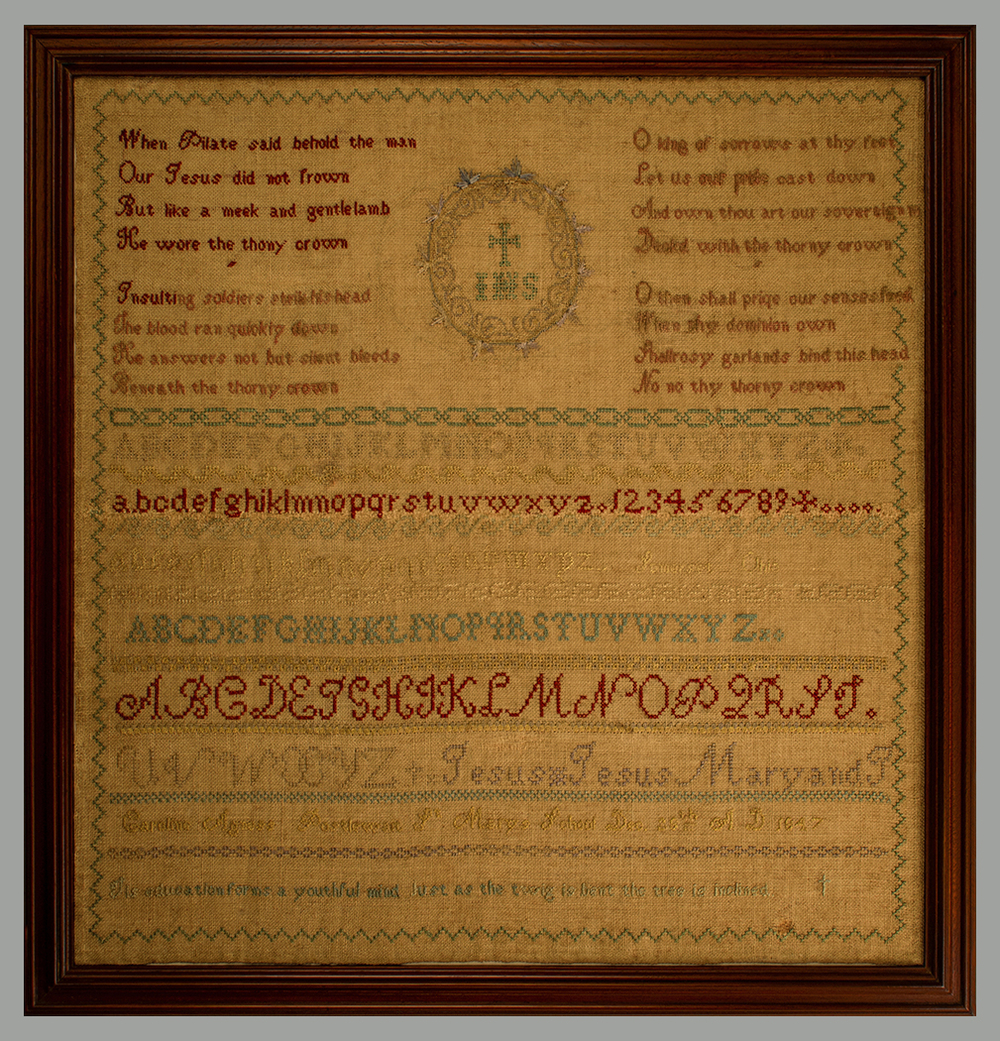 When Pilate said behold the man
Our Jesus did not frown
But like a meek and gentle lamb
He wore the thony crown
Insulting soldiers strik his head
The blood ran quickly down
He answers not but silent bleeds
Beneath the thorny crown
IHS
O king of sorrows at thy feet
Let us our pride cast down
And own thou art our sovertign
with the thorny crown
O then shall priqe our senses
When thy dominion own
Shall rosy garlands bind this head
No no thy thorny crown
ABCDEFGHIJKLMNOPQRSTUVWXYZ
abcdefghiklmnopqrstuvwxyz.123456789
Somerset Ohio
ABCDEFGHIJKLMNOPQRSTUVWXYZ
ABCDEFGHIKLMNOPQRST.
UVWXYZ Jesus Jesus Mary and J
Caroline St. Marys School Dec 25th A D 1847
Tis education forms a youthful mind Just as the twig is bent the tree is inclined